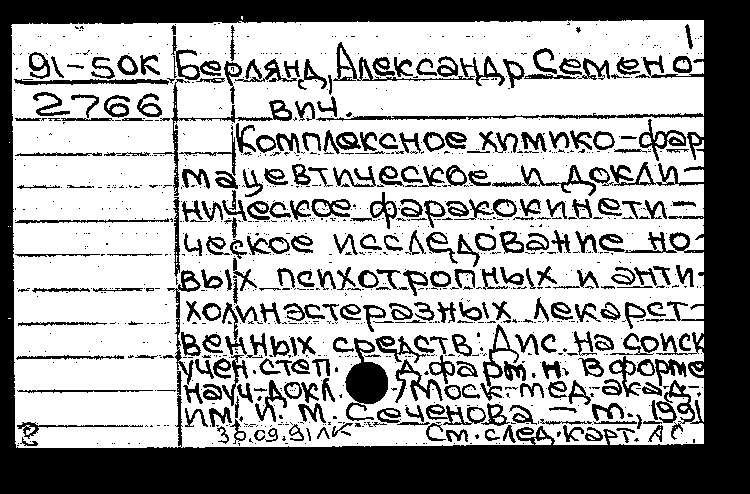 1
91-50К Берлянд, Александр Семено-
2766 вич.
Комплексное химико-фар
мацевтическое и докли-
ническое фаракокинети-
ческое исследование но-
вых психотропных и анти-
холинэстеразных лекарст-
венных средств: Дис. на соиск
учен. степ. д. фарм. н. в форме
науч. докл. / Моск. мед. акад.
им. И. М. Сеченова. - М., 1991
30.09.91 ЛК См. след. карт. АС.